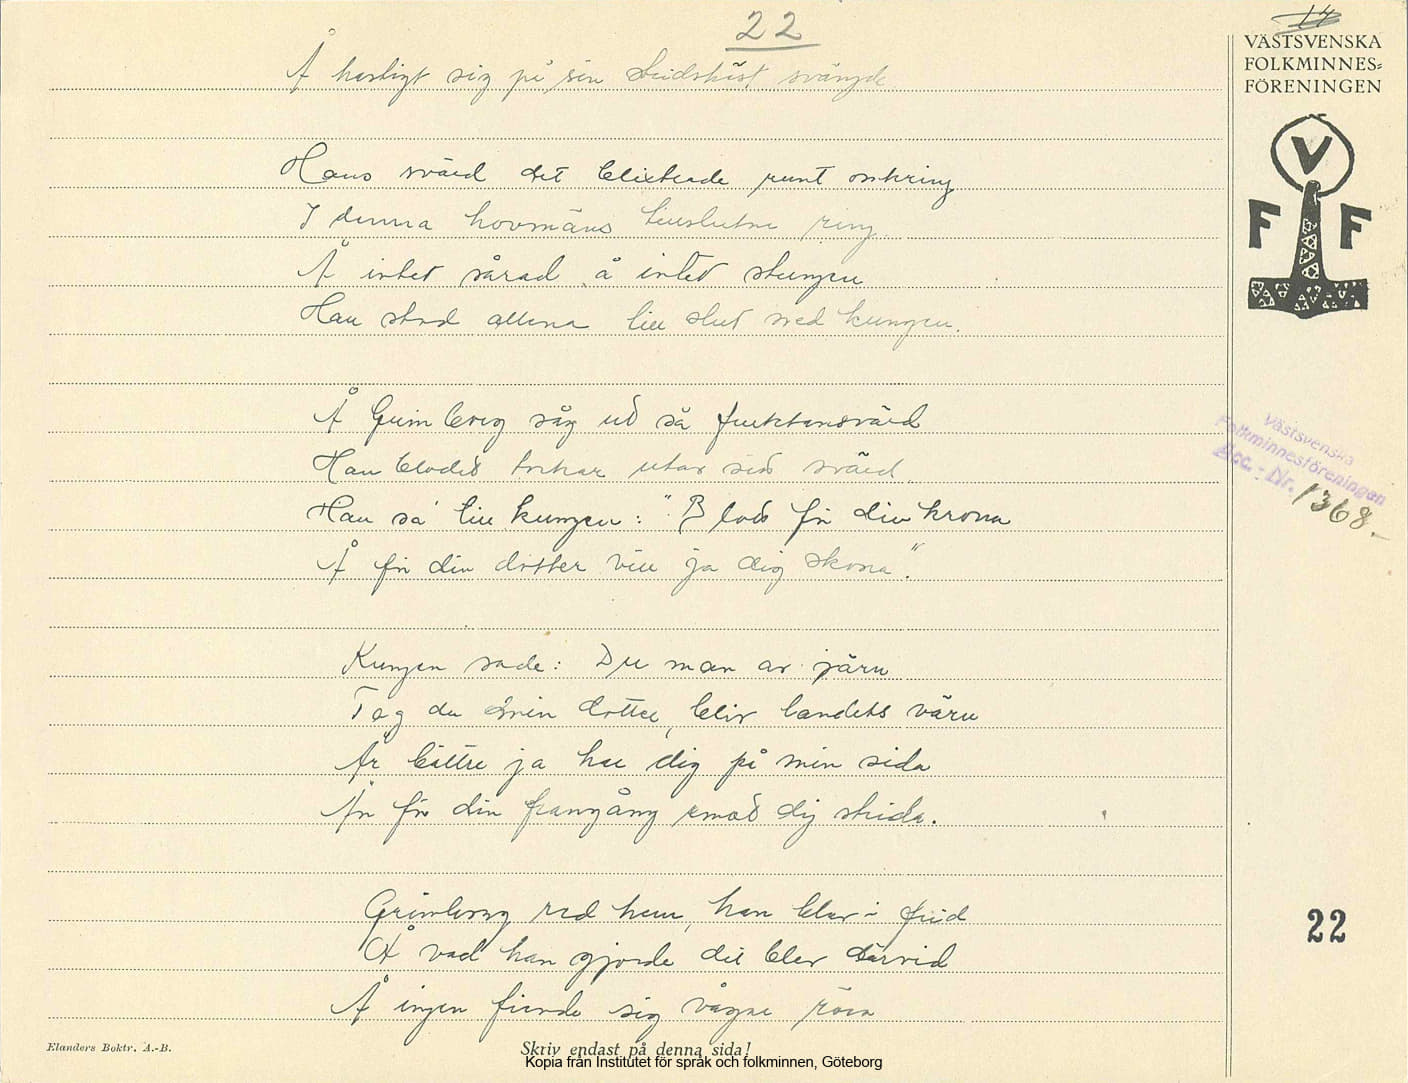 22
14
VÄSTSVENSKA
FOLKMINNES=
FÖRENINGEN
V
F F
Å hastigt sig på sin stridshäst svängde.
Hans svärd det blixtrade runt omkring
I denna hovmäns tillslutna ring.
Å intet sårad å intet stungen
Han stod allena till slut med kungen.
Å Grimborg såg ud så fruktansvärd
Han blodet torkar utav sid svärd
Han sa till kungen: "Blod för din krona
Å för din dotter vill ja dig skona".
Västsvenska
Folkminnesföreningen
Acc. - Nr. 1368.
Kungen sade: Du man av järn
Tag du min dotter, bliv landets värn
Är bättre ja har dig på min sida
Än för din framgång emod dig strida.
Grimborg red hem, han blev i frid
Å vad han gjorde det blev därvid
Å ingen fiende sig vågar röra
22
Elanders Boktr. A.-B.
Skriv endast på denna sida!
Kopia från Institutet för språk och folkminnen, Göteborg